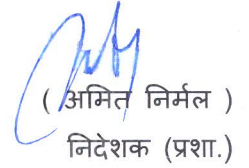 ( अमित निर्मल )
निदेशक (प्रशा.)